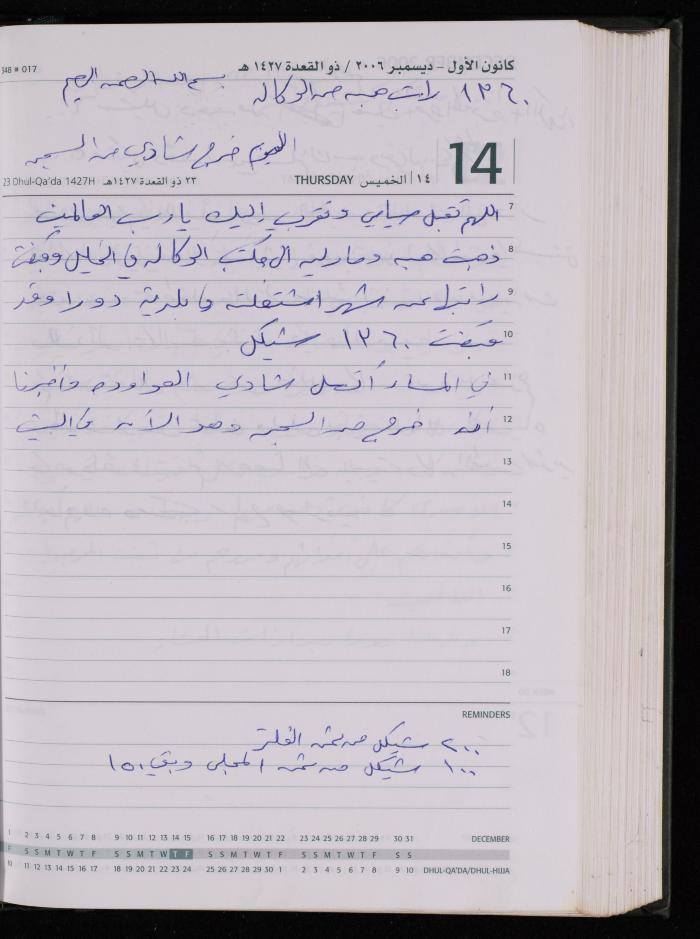 348 • 017
كانون الأول - ديسمبر ٢٠٠٦ / ذو القعدة ١٤٢٧ هـ
بسم الله الرحمن الرحيم
١٣٦٠ راتب هبه من الوكالة
اليوم خرج شادي من السجن
14
23 Dhul-Qa'da 1427H ٢٣ ذو القعدة ١٤٢٧هـ THURSDAY الخميس | ١٤
7 اللهم تقبل صيامي وتقرب إليك يا رب العالمين
8 ذهبت هبه ومارليه الى مكتب الوكالة في الخليل وقبضت
9 راتبا عن شهر اشتغلته في بلدية دورا وقد
10 قبضت ١٣٦٠ شيكل
11 في المساء اتصل شادي العواوده وأخبرنا
12 انه خرج من السجن وهو الآن في البيت
13
14
15
16
17
18
REMINDERS
٢٠٠ شيكل من ثمن الفلتر
١٠٠ شيكل من ثمن المجلى وبقي ١٥٠
1 2 3 4 5 6 7 8 9 10 11 12 13 14 15 16 17 18 19 20 21 22 23 24 25 26 27 28 29 30 31 DECEMBER
F S S M T W T F S S M T W T F S S M T W T F S S M T W T F S S
10 11 12 13 14 15 16 17 18 19 20 21 22 23 24 25 26 27 28 29 30 1 2 3 4 5 6 7 8 9 10 DHUL-QA'DA/DHUL-HIJJA